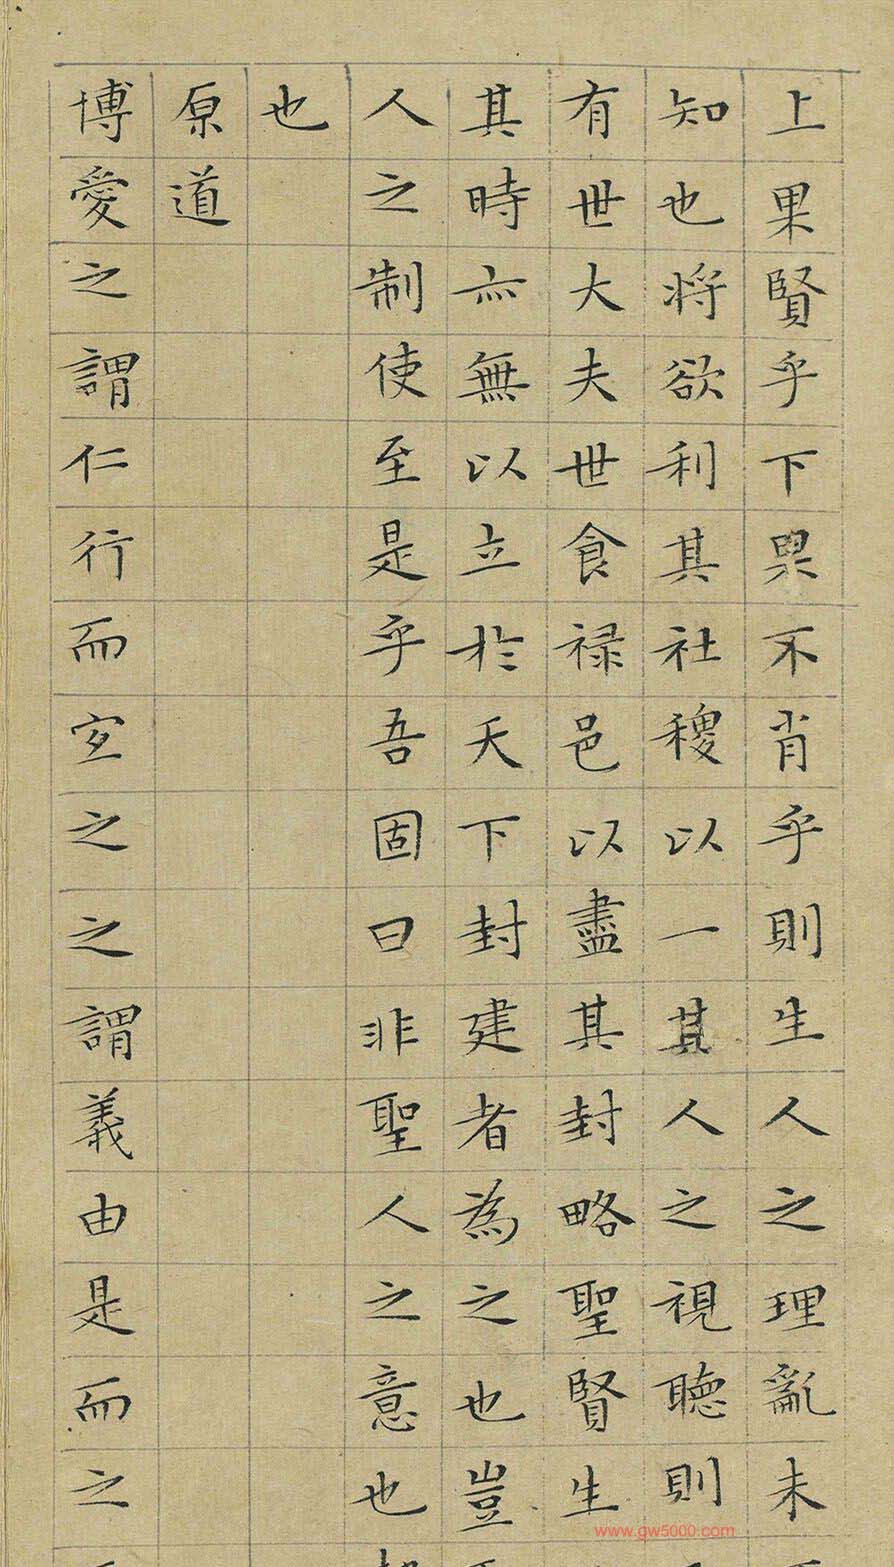 上果賢乎下果不肖乎則生人之理亂未
知也將欲利其社稷以一其人之視聽則
有世大夫世食禄邑以盡其封略聖賢生
其時亦無以立於天下封建者為之也豈
人之制使至是乎吾固曰非聖人之意也
也
原道
博愛之謂仁行而宜之之謂義由是而之
www.gw5000.com